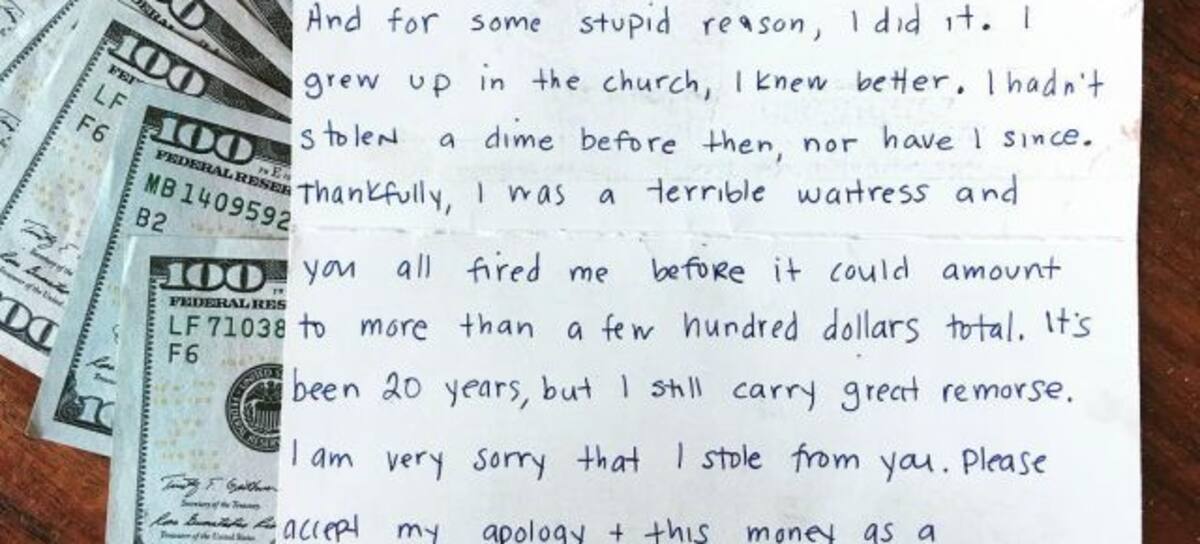 And for some stupid reason, I did it. I
grew up in the church, I knew better. I hadn't
stolen a dime before then, nor have I since.
Thankfully, I was a terrible waitress and
you all fired me before it could amount
to more than a few hundred dollars total. It's
been 20 years, but I still carry great remorse.
I am very sorry that I stole from you. Please
accept my apology + this money as a
100
LF
F6
100
FEDERAL RESER
MB1409592
B2
100
FEDERAL RES
LF71038
F6
Secretary of the Treasury
Treasurer of the United States